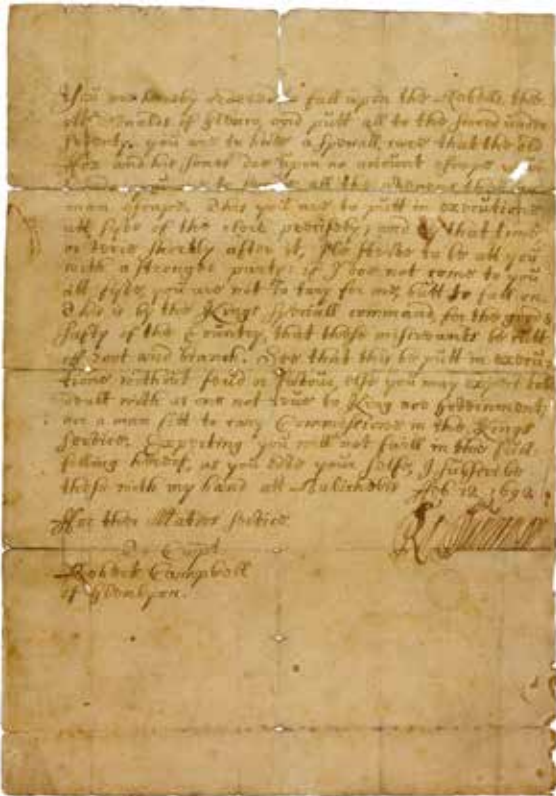 You are hereby ordered to fall upon the Rabelle, the
McDonalds of Glenco, and putt all to the sword under
seventy. you are to have a speciall care that the old
ffox and his sones doe upon no account escape
you are to all the avenues that no
man escape. This you are to putt in execution
att fyve of the clock precisely; and by that time
or verie shortly after it, I'le strive to be att you
with a stronger party: if I doe not come to you
att fyve, you are not to tary for me, butt to fall on.
This is by the Kings speciall command, for the good &
safty of the Country, that these miscreants be cutt
off root and branch. See that this be putt in execu
tione without feud or favour, else you may expect to be
dealt with as one not true to King nor Government,
nor a man fitt to cary Commissione in the Kings
service. Expecting you will not faill in the full
filling hereof, as you love your selfe, I subscribe
these with my hand att Balicholis Feb 12, 1692
ffor their Maties service
To Capt.
Robert Campbell
of Glenlyon.